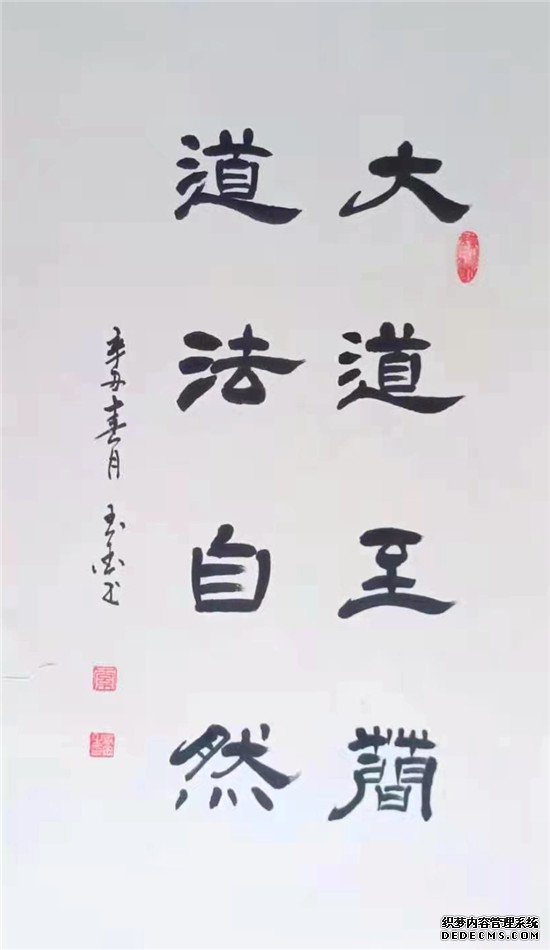 大道至簡
道法自然
辛丑春月 玉香书
织梦内容管理系统
DEDECMS.COM